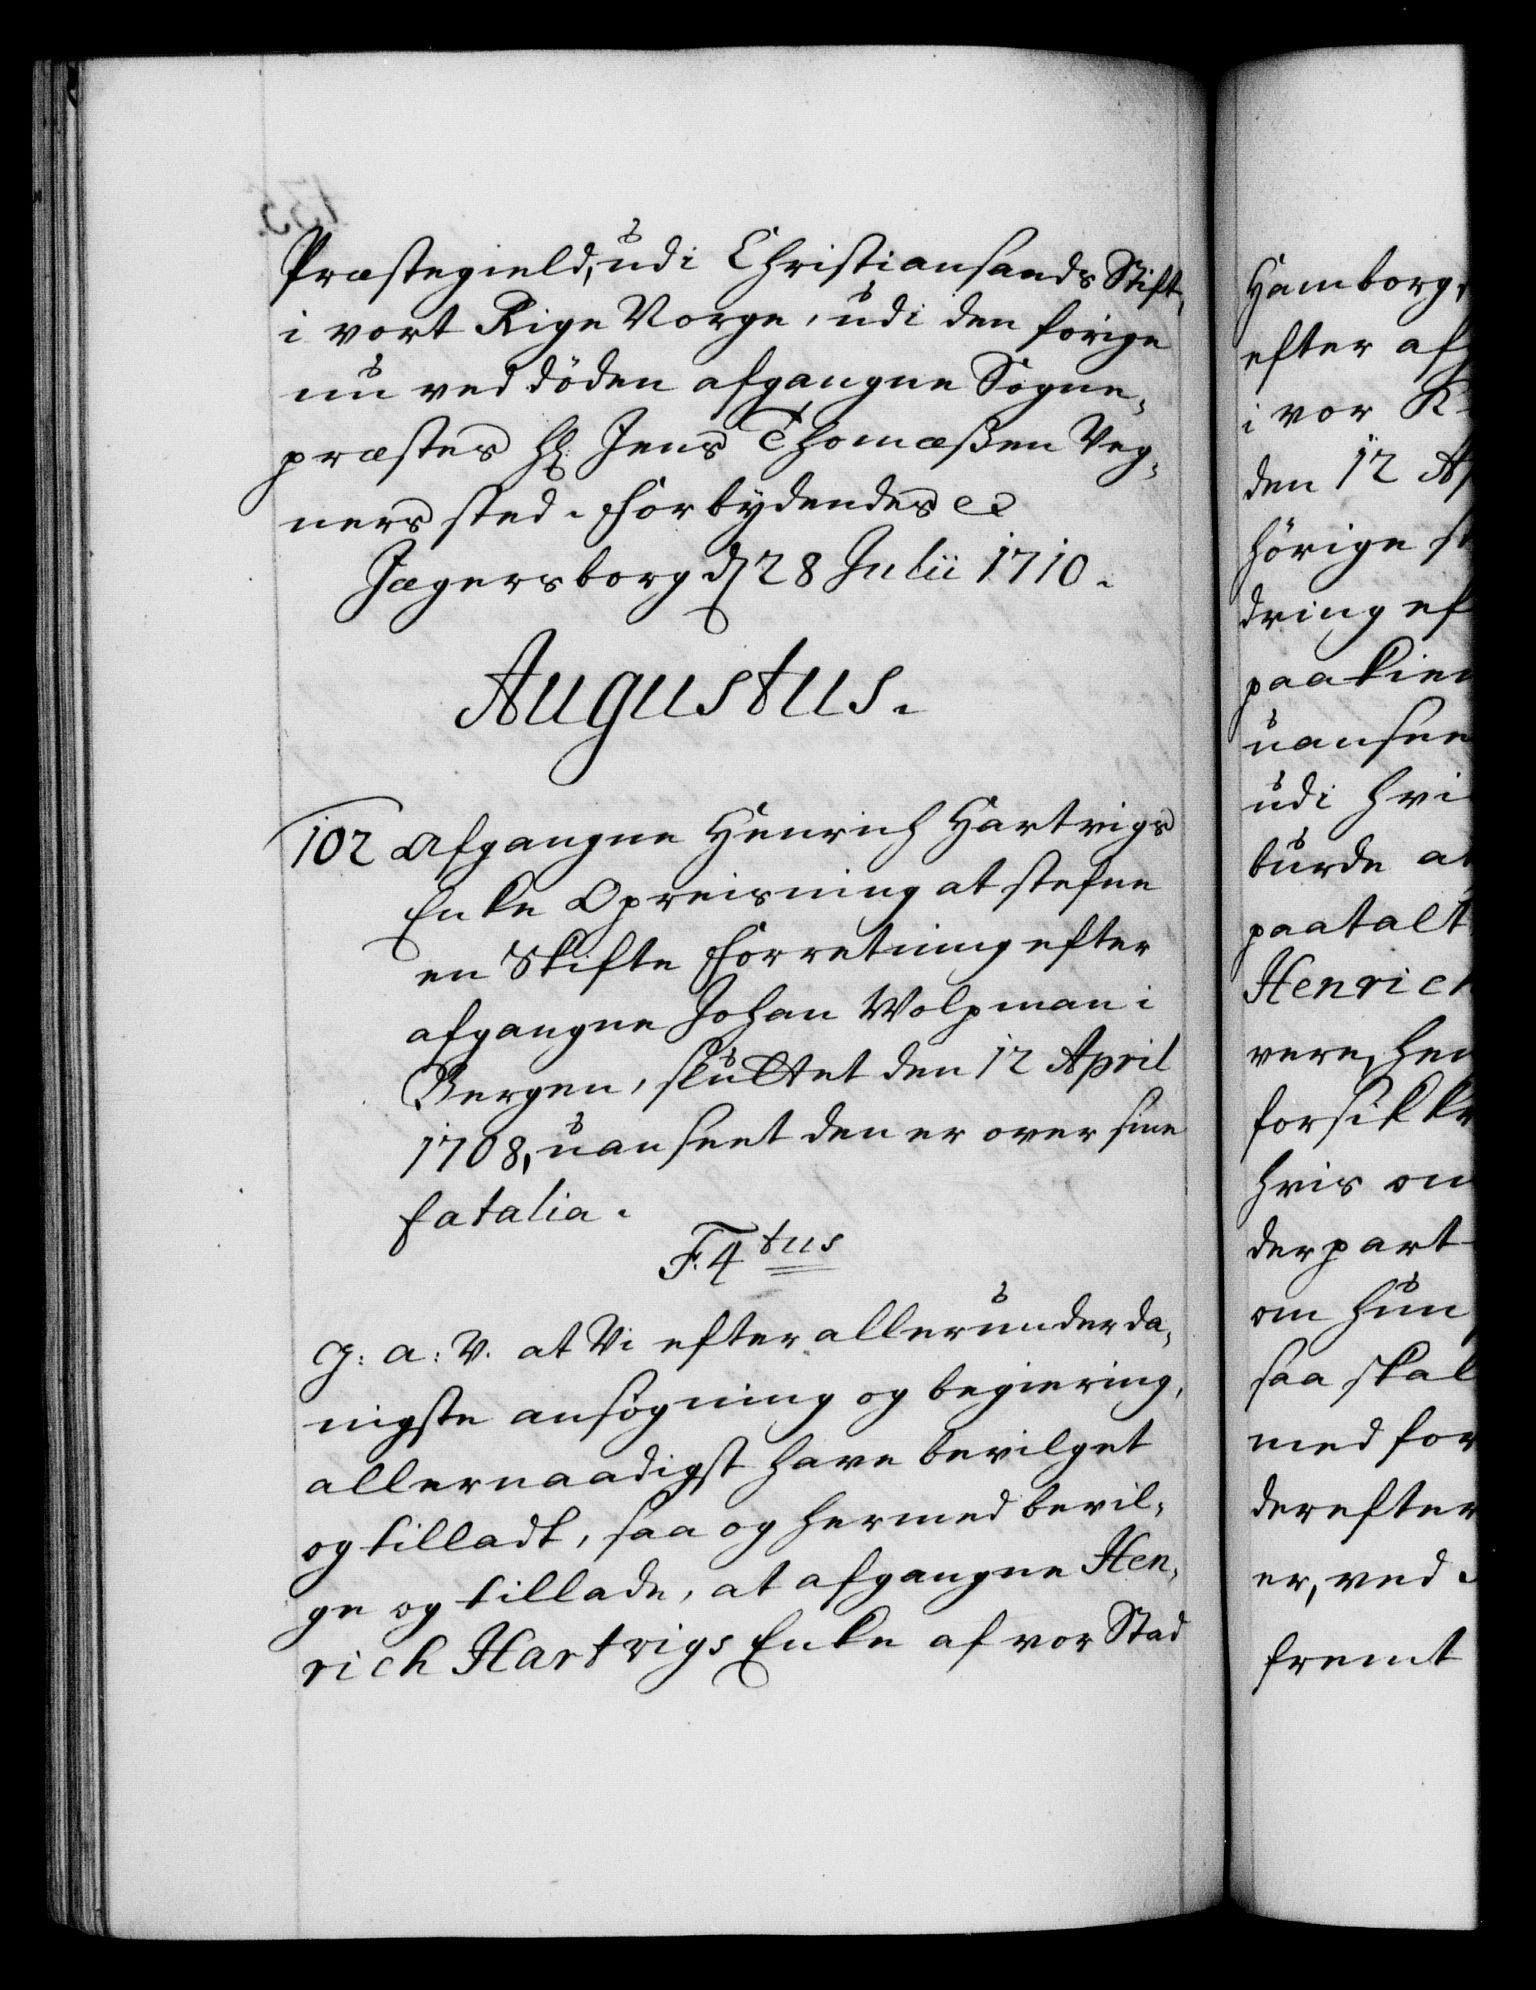 Præstegield, udi Christiansands Stift,
i vort Rige Norge, udi den forige
nu ved döden afgangne Sogne-
præstes Hr. Jens Thomæßen Veg-
ners sted. Forbydendes etc.
Jægersborg d. 28 Julii 1710.
Augustus.
102 Afgangne Henrich Hartvigs
Enke Opreisning at stefne
en Skifte Forretning efter
afgangne Johan Wolpman i
Bergen, sluttet den 12 April
1708, uanseet den er over sine
fatalia.
F. 4tus
G: a: V. at Vi efter allerunderda-
nigste ansøgning og begiering,
allernaadigst have bevilget
og tilladt, saa og hermed bevil-
ge og tillade, at afgangne Hen-
rich Hartvigs Enke af vor Stad
Hamborg,
efter af
i vor
den 12 Ap
hörige
dring ef
paakien
uansee
udi hvi
burde at
paatalt
Henrich
vere, hen
forsikkr
hvis on
derpart
om hun
saa skal
med for
derefter
er, ved
fremt